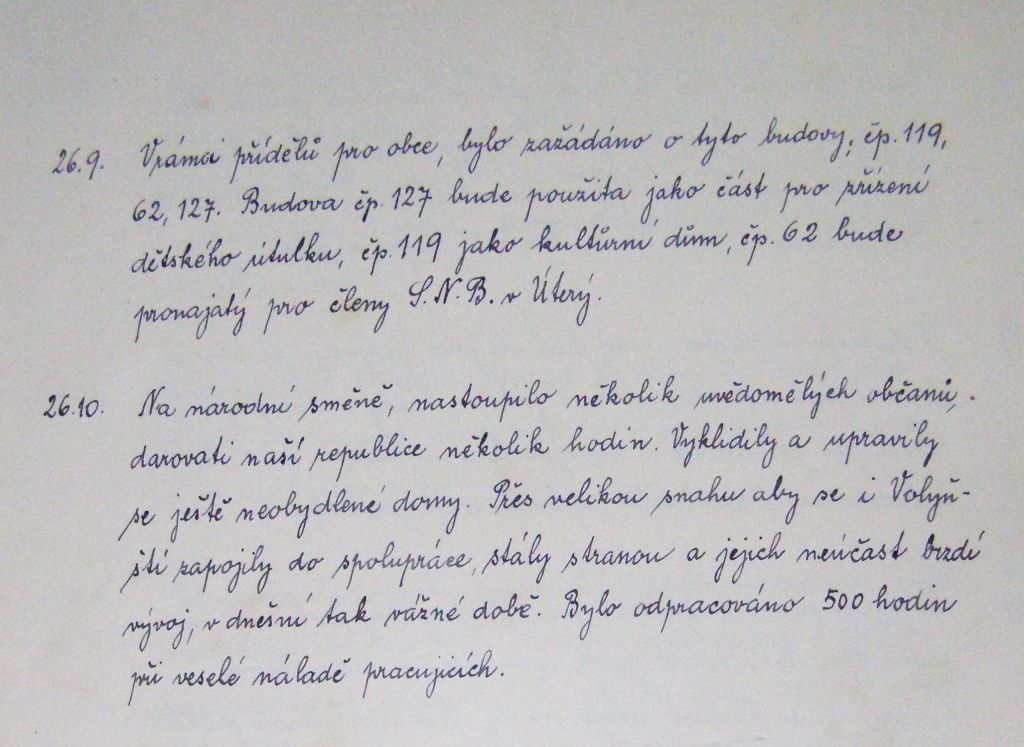 26.9. Vrámci přídělů pro obce, bylo zažádáno o tyto budovy; čp. 119,
62, 127. Budova čp. 127 bude použita jako část pro zřízení
dětského útulku, čp. 119 jako kultůrní dům, čp. 62 bude
pronajatý pro členy S.N.B. v Úterý.
26.10. Na národní směně, nastoupilo několik uvědomělých občanů,
darovati naší republice několik hodin. Vyklidily a upravily
se ještě neobydlené domy. Přes velikou snahu aby se i Volyň-
ští zapojily do spolupráce, stály stranou a jejich neúčast brzdí
vývoj, v dnešní tak vážné době. Bylo odpracováno 500 hodin
při veselé náladě pracujicích.